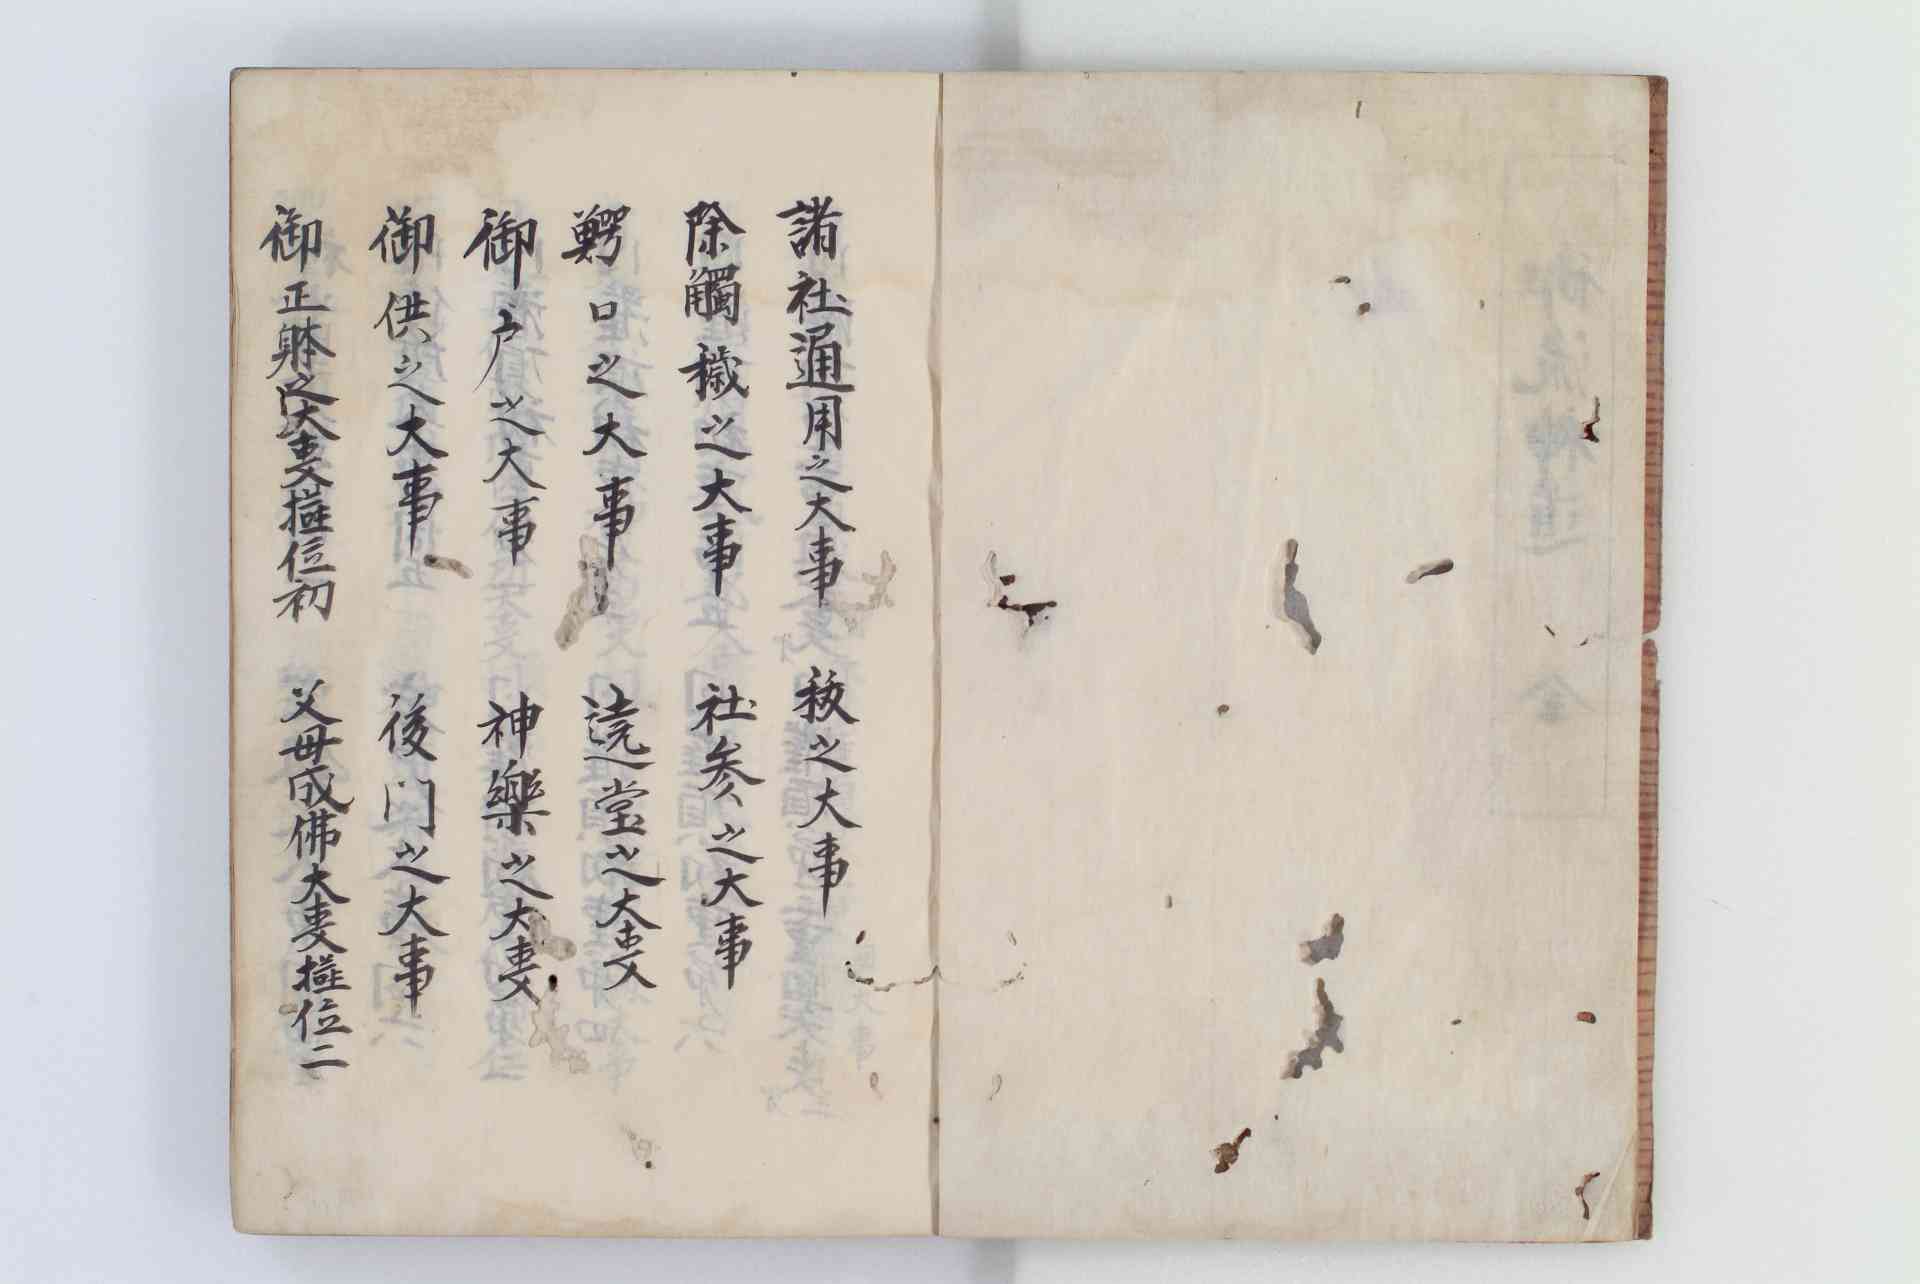 諸社通用之大事　祓之大事
除觸穢之大事　社参之大事
鰐口之大事　遶堂之大事
御戸之大事　神樂之大事
御供之大事　後門之大事
御正躰之大事摂位初　父母成佛大事摂位二